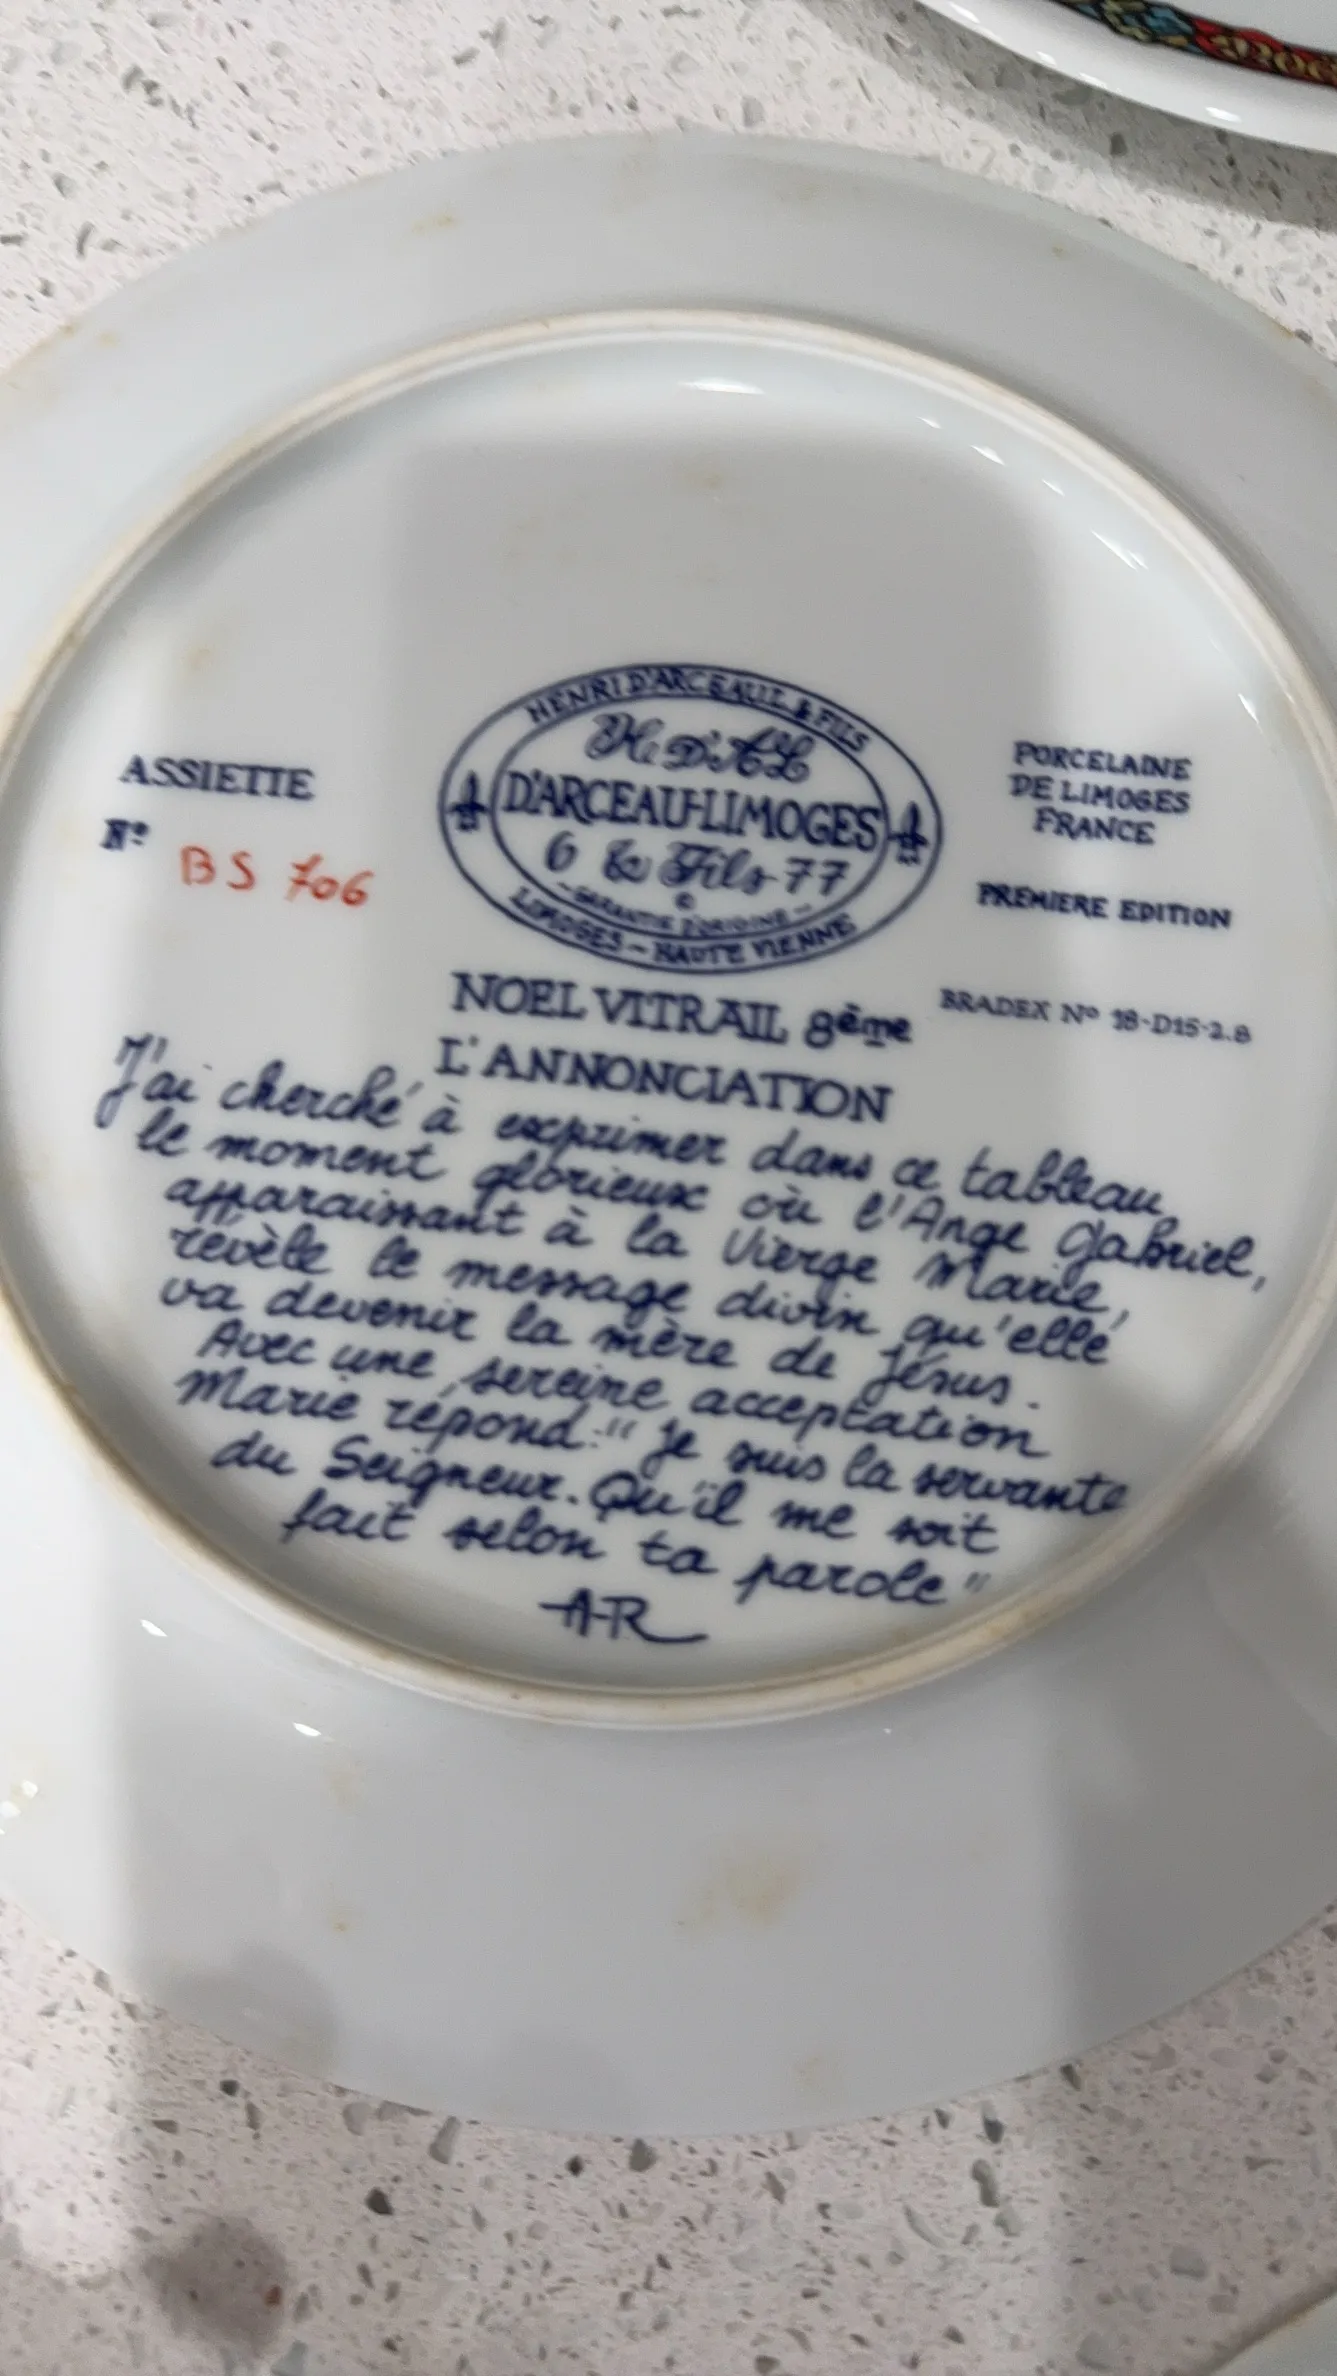 HENRI D'ARCEAU & FILS
H. D'A. L.
D'ARCEAU-LIMOGES
6 & Fils 77
©
- GARANTIE D'ORIGINE -
LIMOGES - HAUTE VIENNE
ASSIETTE
Nº BS 706
PORCELAINE
DE LIMOGES
FRANCE
PREMIERE EDITION
BRADEX Nº 18-D15-2.8
NOEL VITRAIL 8ème
L'ANNONCIATION
J'ai cherché à exprimer dans ce tableau
le moment glorieux où l'Ange Gabriel,
apparaissant à la Vierge Marie,
révèle le message divin qu'elle
va devenir la mère de Jésus.
Avec une sereine acceptation
Marie répond: "Je suis la servante
du Seigneur. Qu'il me soit
fait selon ta parole"
AR